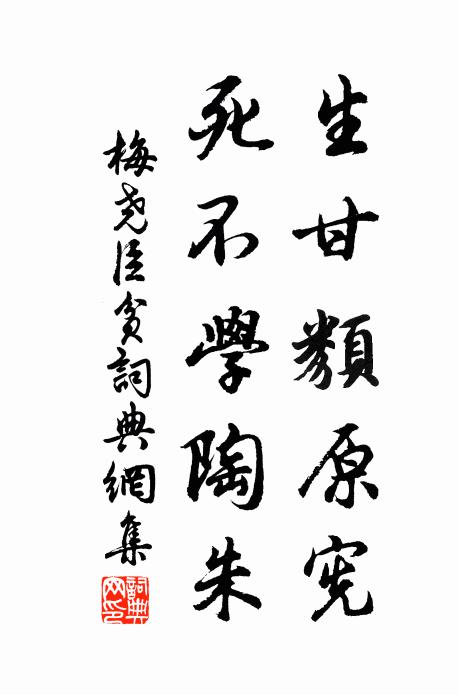 生甘類原宪
死不學陶朱
梅尧臣貧詞典網集
詞典網印